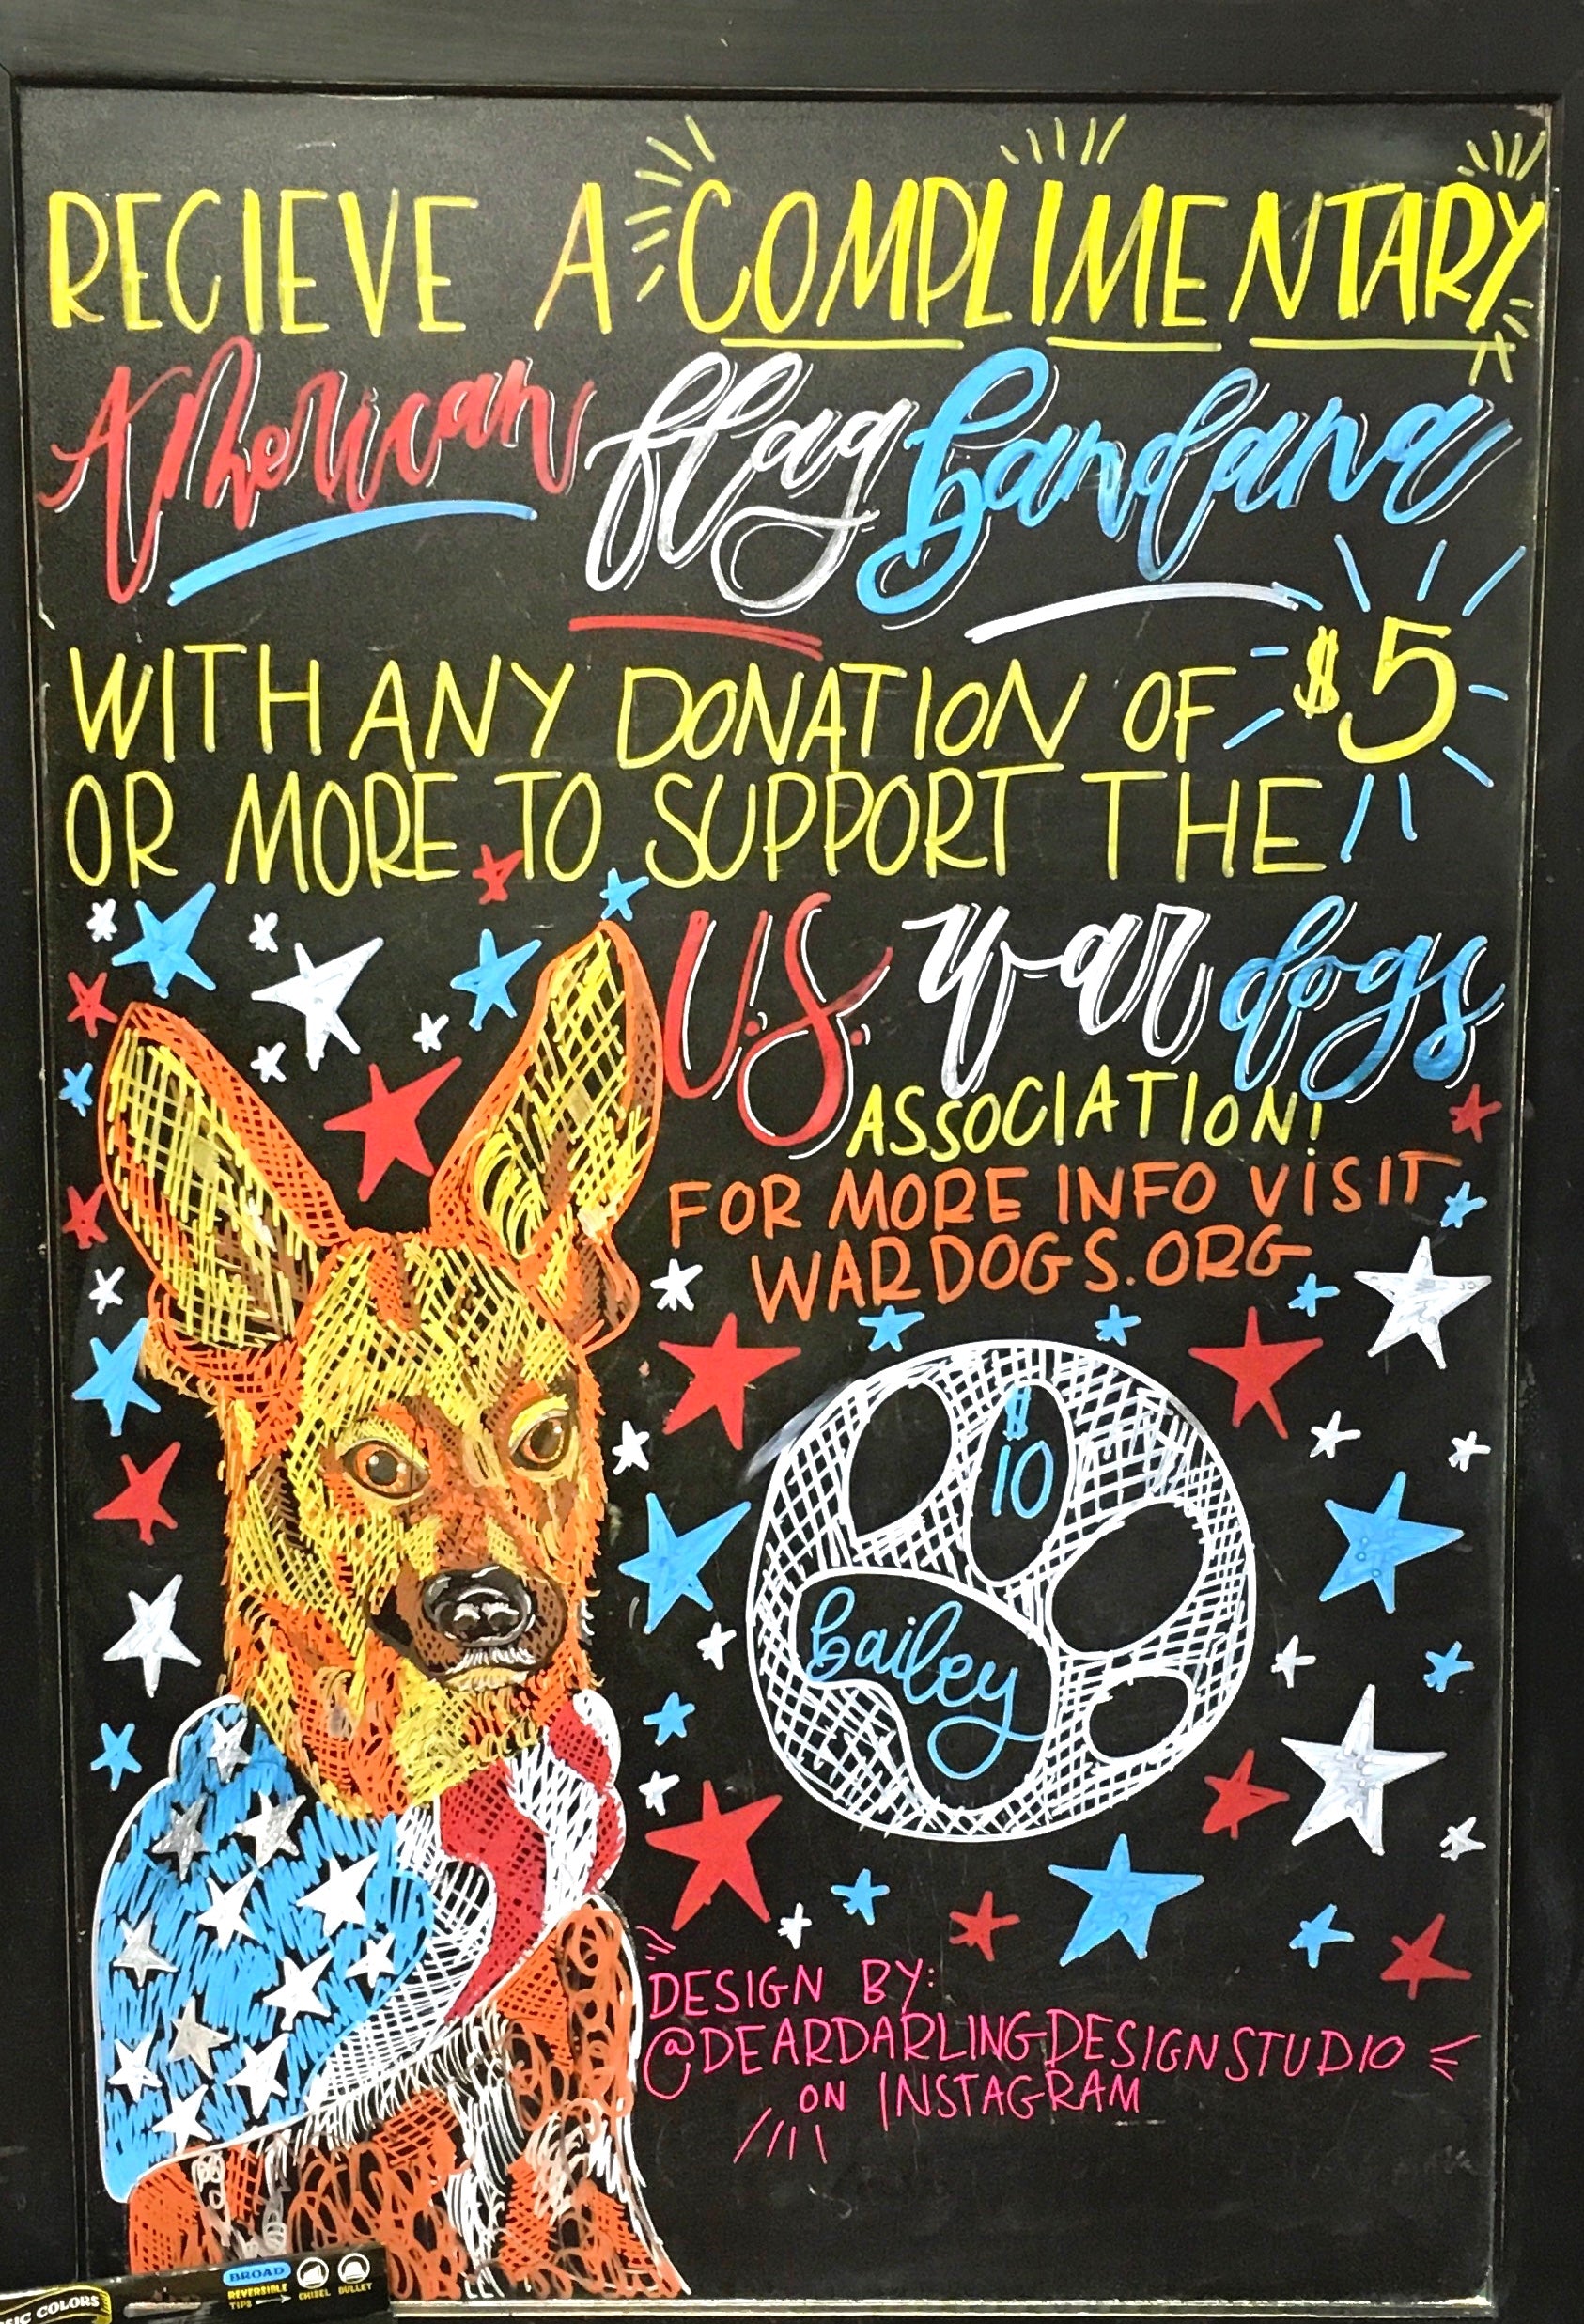 RECIEVE A COMPLIMENTARY
American flag bandana
WITH ANY DONATION OF $5
OR MORE TO SUPPORT THE
U.S. war dogs
ASSOCIATION!
FOR MORE INFO VISIT
WARDOGS.ORG
$
10
bailey
DESIGN BY:
@DEARDARLINGDESIGNSTUDIO
ON INSTAGRAM
BROAD
REVERSIBLE
TIPS
CHISEL BULLET
IC COLORS